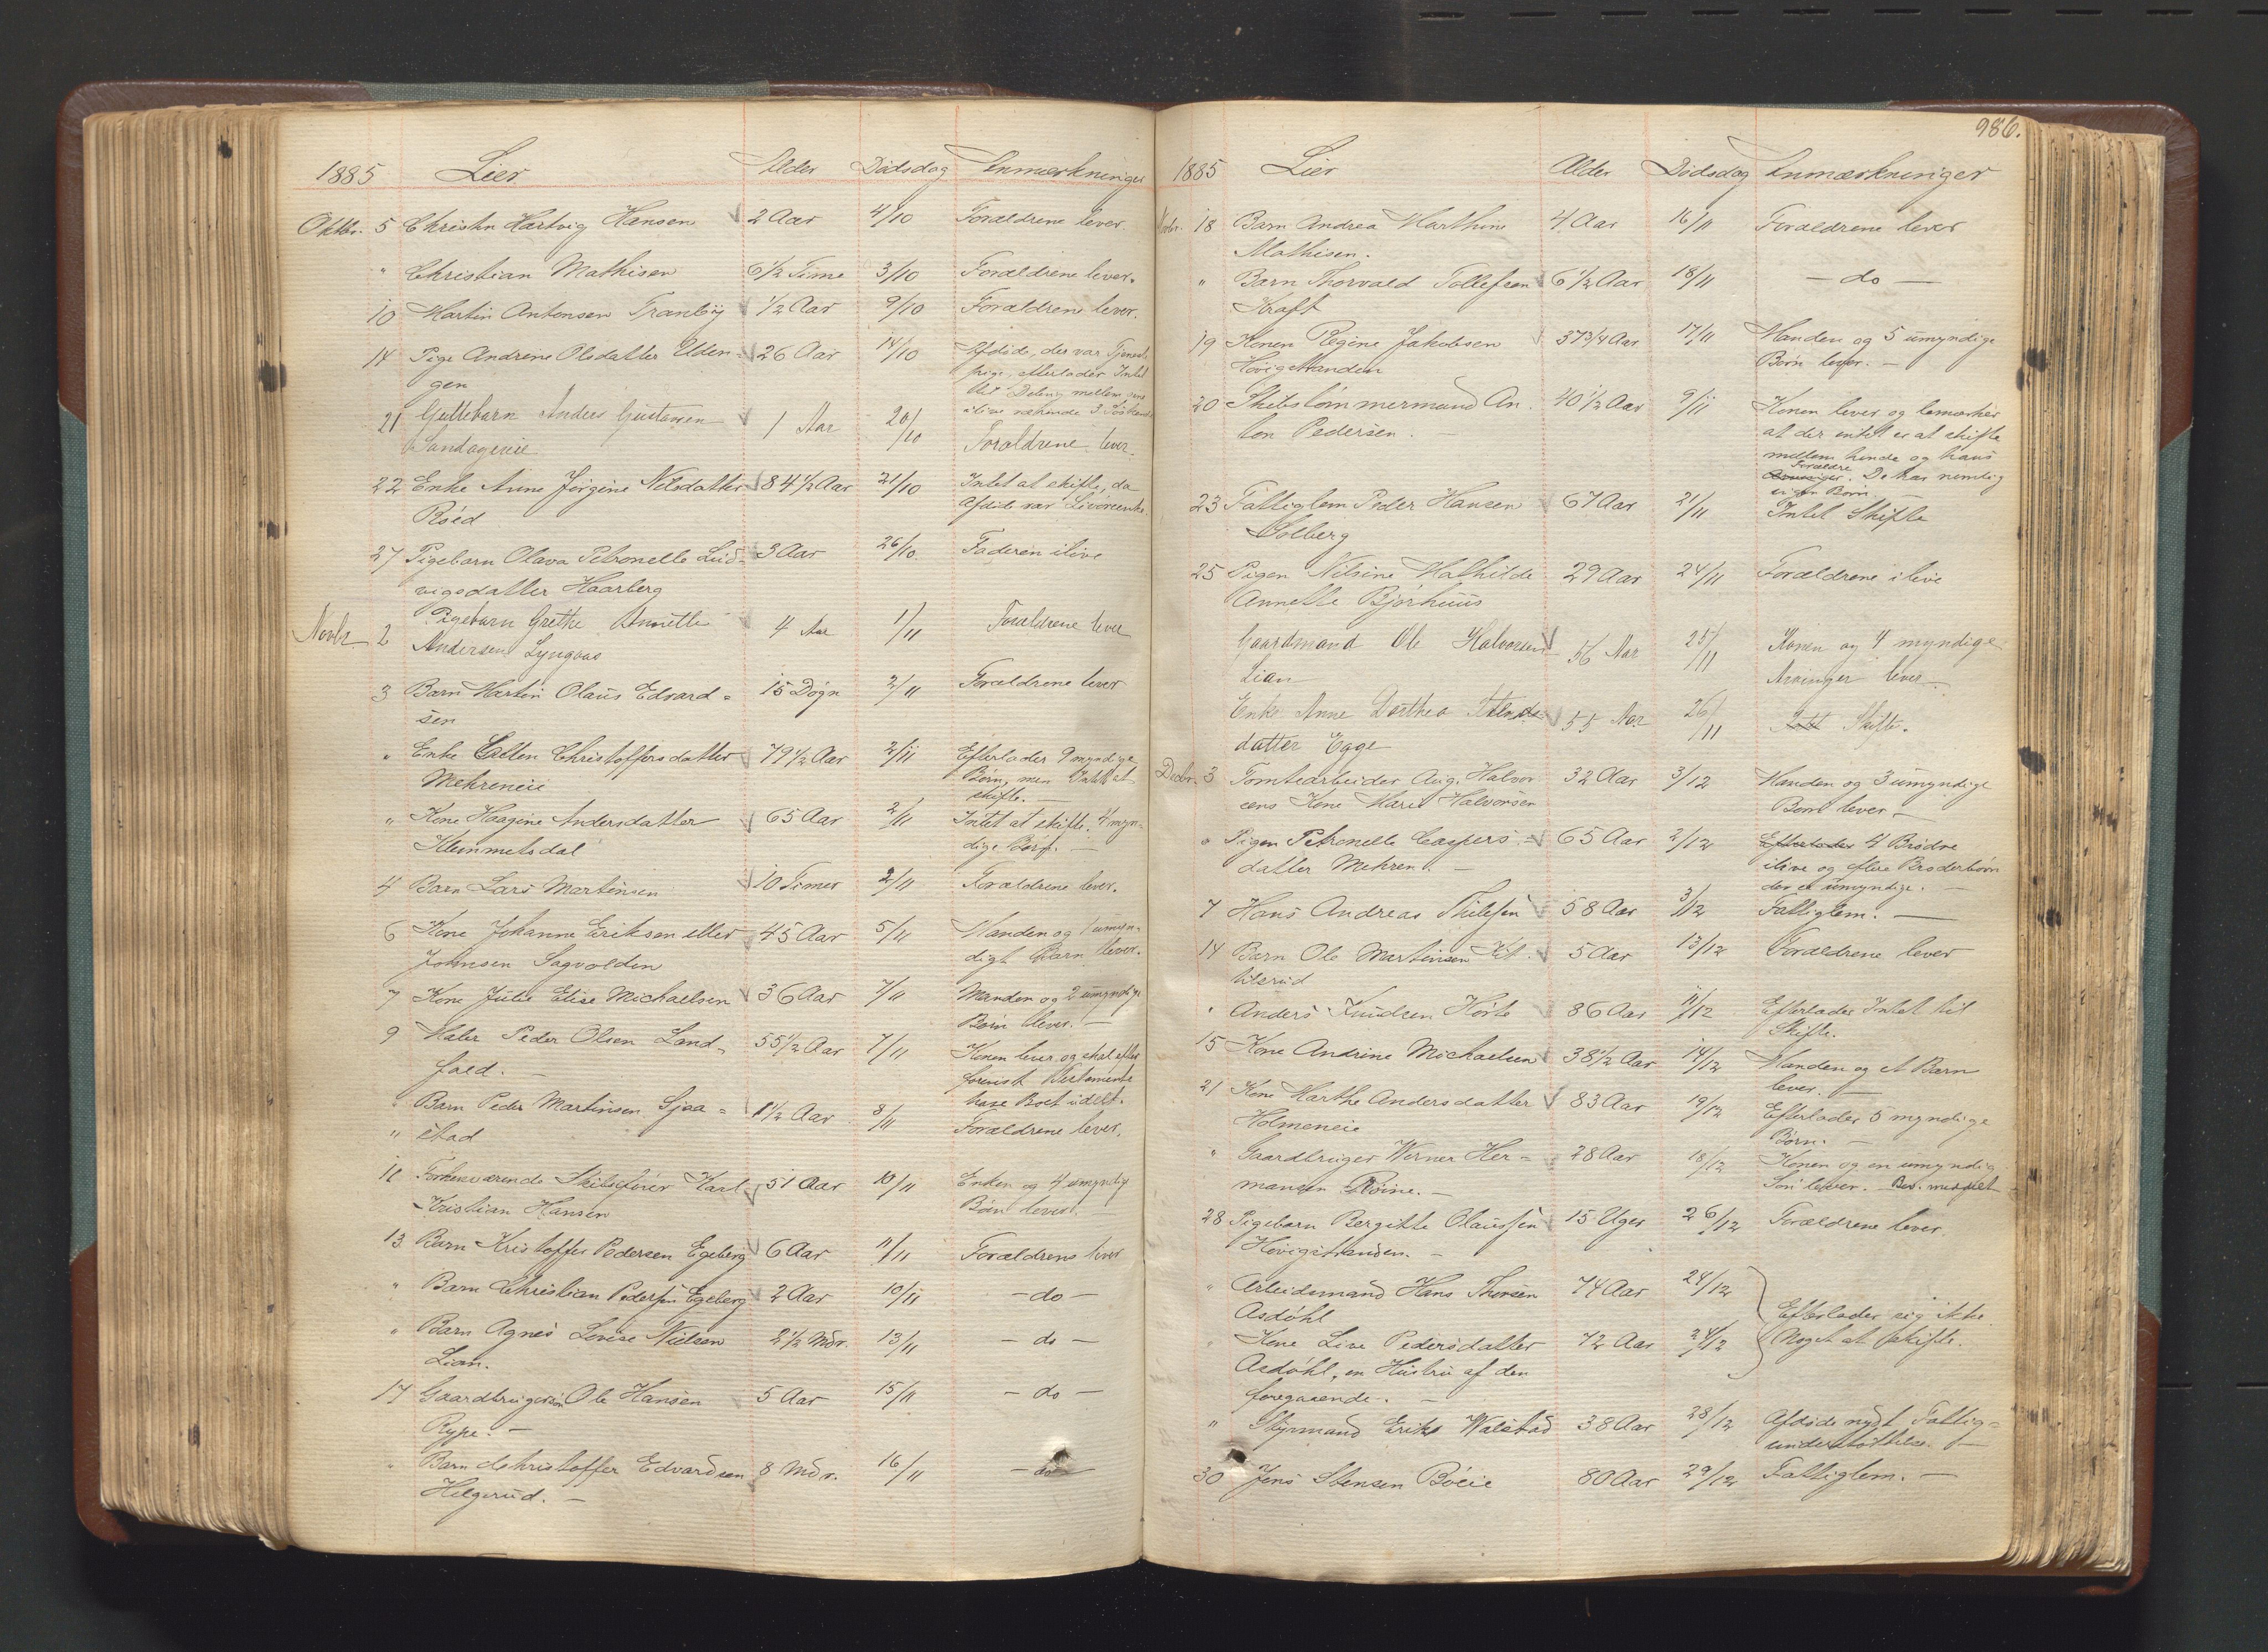 1885 Lier Alder Dødsdag Anmærkninger
Oktbr. 5 Christn Hartvig Hansen 2 Aar 4/10 Forældrene lever.
" Christian Mathisen 6 1/2 Time 3/10 Forældrene lever.
10 Martin Antonsen Tranby 1/2 Aar 9/10 Forældrene lever.
14 Pige Andrene Olsdatter Uden= 26 Aar 14/10 Afdøde, der var Tjeneste
gen pige, efterlader Intet
til Deling mellem sine
ilive værende 3 Søskende
21 Guttebarn Anders Gustavsen 1 Aar 20/10 Forældrene lever.
22 Enke Anne Jørgine Nilsdatter 84 1/2 Aar 21/10 Intet at skifte, da
Røed Afdøde var
27 Pigebarn Olava Petronelle Lud= 3 Aar 26/10. Faderen ilive
vigsdatter Haarberg
Novbr. 2 Pigebarn Grethe Annette 4 Aar 1/11 Forældrene lever
Andersen Lyngaas
3 Barn Martin Olaus Edvard= 15 Døgn 2/11 Forældrene lever
sen
" Enke Christoffersdatter 79 1/2 Aar 2/11 Efterlader 9 myndige
Mehreneie Børn, men Intet at
skifte. —
" Kone Haagine Andersdatter 65 Aar 2/11 Intet at skifte. 4 myn=
Klemmetsdal dige Børn. —
4 Barn Lars Martinsen 10 Timer 2/11 Forældrene lever.
6 Kone Johanne Eriksen eller 45 Aar 5/11 Manden og 1 umyn=
Johnsen Sagvolden digt Barn lever.
7 Kone Julie Elise Michaelsen 36 Aar 7/11 Manden og 2 umyndige
Børn lever. —
9 Maler Peder Olsen Land= 55 1/2 Aar 7/11 Konen lever og skal efter
fald. — Testamente
have Boet udelt.
" Barn Peder Martinsen Sjaa= 1 1/2 Aar 8/11 Forældrene lever.
" stad
11 Forhenværende Skibsfører Karl 51 Aar 10/11 Enken og 4 umyndig
Kristian Hansen Børn lever. —
13 Barn Kristoffer Pedersen Egeberg 6 Aar 11/11 Forældrene lever
" Barn Christian Pedersen Egeberg 2 Aar 10/11 — do —
" Barn Agnes Lovise Nielsen 2 1/2 Mdr. 13/11 — do —
Lian.
17 Gaardbrugersøn Ole Hansen 5 Aar 15/11 — do —
Rype. —
" Barn Christoffer Edvardsen 8 Mdr. 16/11 — do —
Helgerud. —
986.
1885 Lier Alder Dødsdag Anmærkninger
Novbr. 18 Barn Andrea Marthine 4 Aar 16/11 Forældrene lever
Mathisen.
" Barn Thorvald Tollefsen 6 1/2 Aar 18/11 — do —
Kraft
19 Konen Regine Jakobsen 37 3/4 Aar 17/11 Manden og 5 umyndige
Høvigstranden Børn lever. —
20 Skibstømmermand An= 40 1/2 Aar 9/11 Konen lever og bemærker
ton Pedersen. — at der intet er at skifte
mellem hende og hans
Forældre. De har nemlig
ingen Børn.
23 Fattiglem Peder Hansen 67 Aar 21/11 Intet Skifte
Solberg
25 Pigen Nilsine Mathilde 29 Aar 24/11 Forældrene ilive
Annette Bjørhuus
Gaardmand Ole Halvorsen 56 Aar 25/11 Konen og 4 myndige
Lian Arvinger lever.
Enke Anne Dorthea 55 Aar 26/11 Intet Skifte.
datter Egge
Decbr. 3 Tomtearbeider Aug. Halvor 32 Aar 3/12 Manden og 3 umyndige
sens Kone Marie Halvorsen Børn lever —
" Pigen Petronelle Caspers= 65 Aar 2/12 Efterlader 4 Brødre
datter Mehren. — ilive og flere Broderbørn
der er umyndige. —
7 Hans Andreas Thilesen 58 Aar 3/12 Fattiglem. —
14 Barn Ole Martinsen Kit= 5 Aar 13/12 Forældrene lever
tilsrud
" Anders Knudsen Hørte 86 Aar 11/12 Efterlader Intet til
Skifte.
15 Kone Andrine Michaelsen 38 1/2 Aar 14/12 Manden og et Barn
lever. —
21 Kone Marthe Andersdatter 83 Aar 19/12 Efterlader 5 myndige
Holmeneie Børn. —
" Gaardbruger Werner Her= 28 Aar 18/12 Konen og en umyndig
mansen Røine. — Søn lever. — Bev. meddelt
28 Pigebarn Bergitte Olaussen 15 Uger 26/12 Forældrene lever.
Høvigstranden. —
" Arbeidsmand Hans Thorsen 74 Aar 24/12
Asdøhl Efterlader sig ikke
" Kone Live Pedersdatter 72 Aar 24/12 Noget at skifte.
Asdøhl, en Hustru af den
foregaaende. —
" Styrmand Erik Walstad 38 Aar 28/12 Afdøde nydt Fattig=
understøttelse. —
30 Jens Stensen Bøeie 80 Aar 29/12 Fattiglem. —